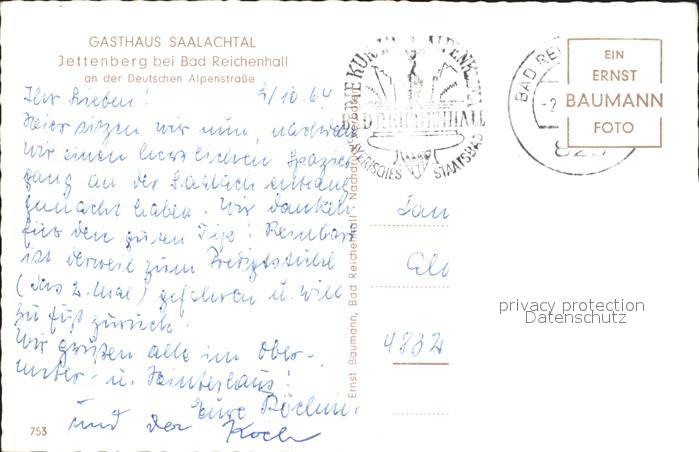 GASTHAUS SAALACHTAL
Jettenberg bei Bad Reichenhall
an der Deutschen Alpenstraße
Ihr Lieben! 2/10.64
Hier sitzen wir nun, nachdem
wir einen herrlichen Spazier-
gang an der Saalach entlang
gemacht haben. Wir danken
für den guten Tip! Reinhard
ist derweil zum Predigtstuhl
(das 2. Mal) gefahren u. will
zu Fuß zurück.
Wir grüßen alle im Ober-,
Unter- u. Hinterhaus!
Eure
und der Koch
753
Ernst Baumann, Bad Reichenhall Nachdruck verboten
BAYERISCHES STAATSBAD
BAD REICHENHALL
BAD REI
-2
823
EIN
ERNST
BAUMANN
FOTO
4832
privacy protection
Datenschutz